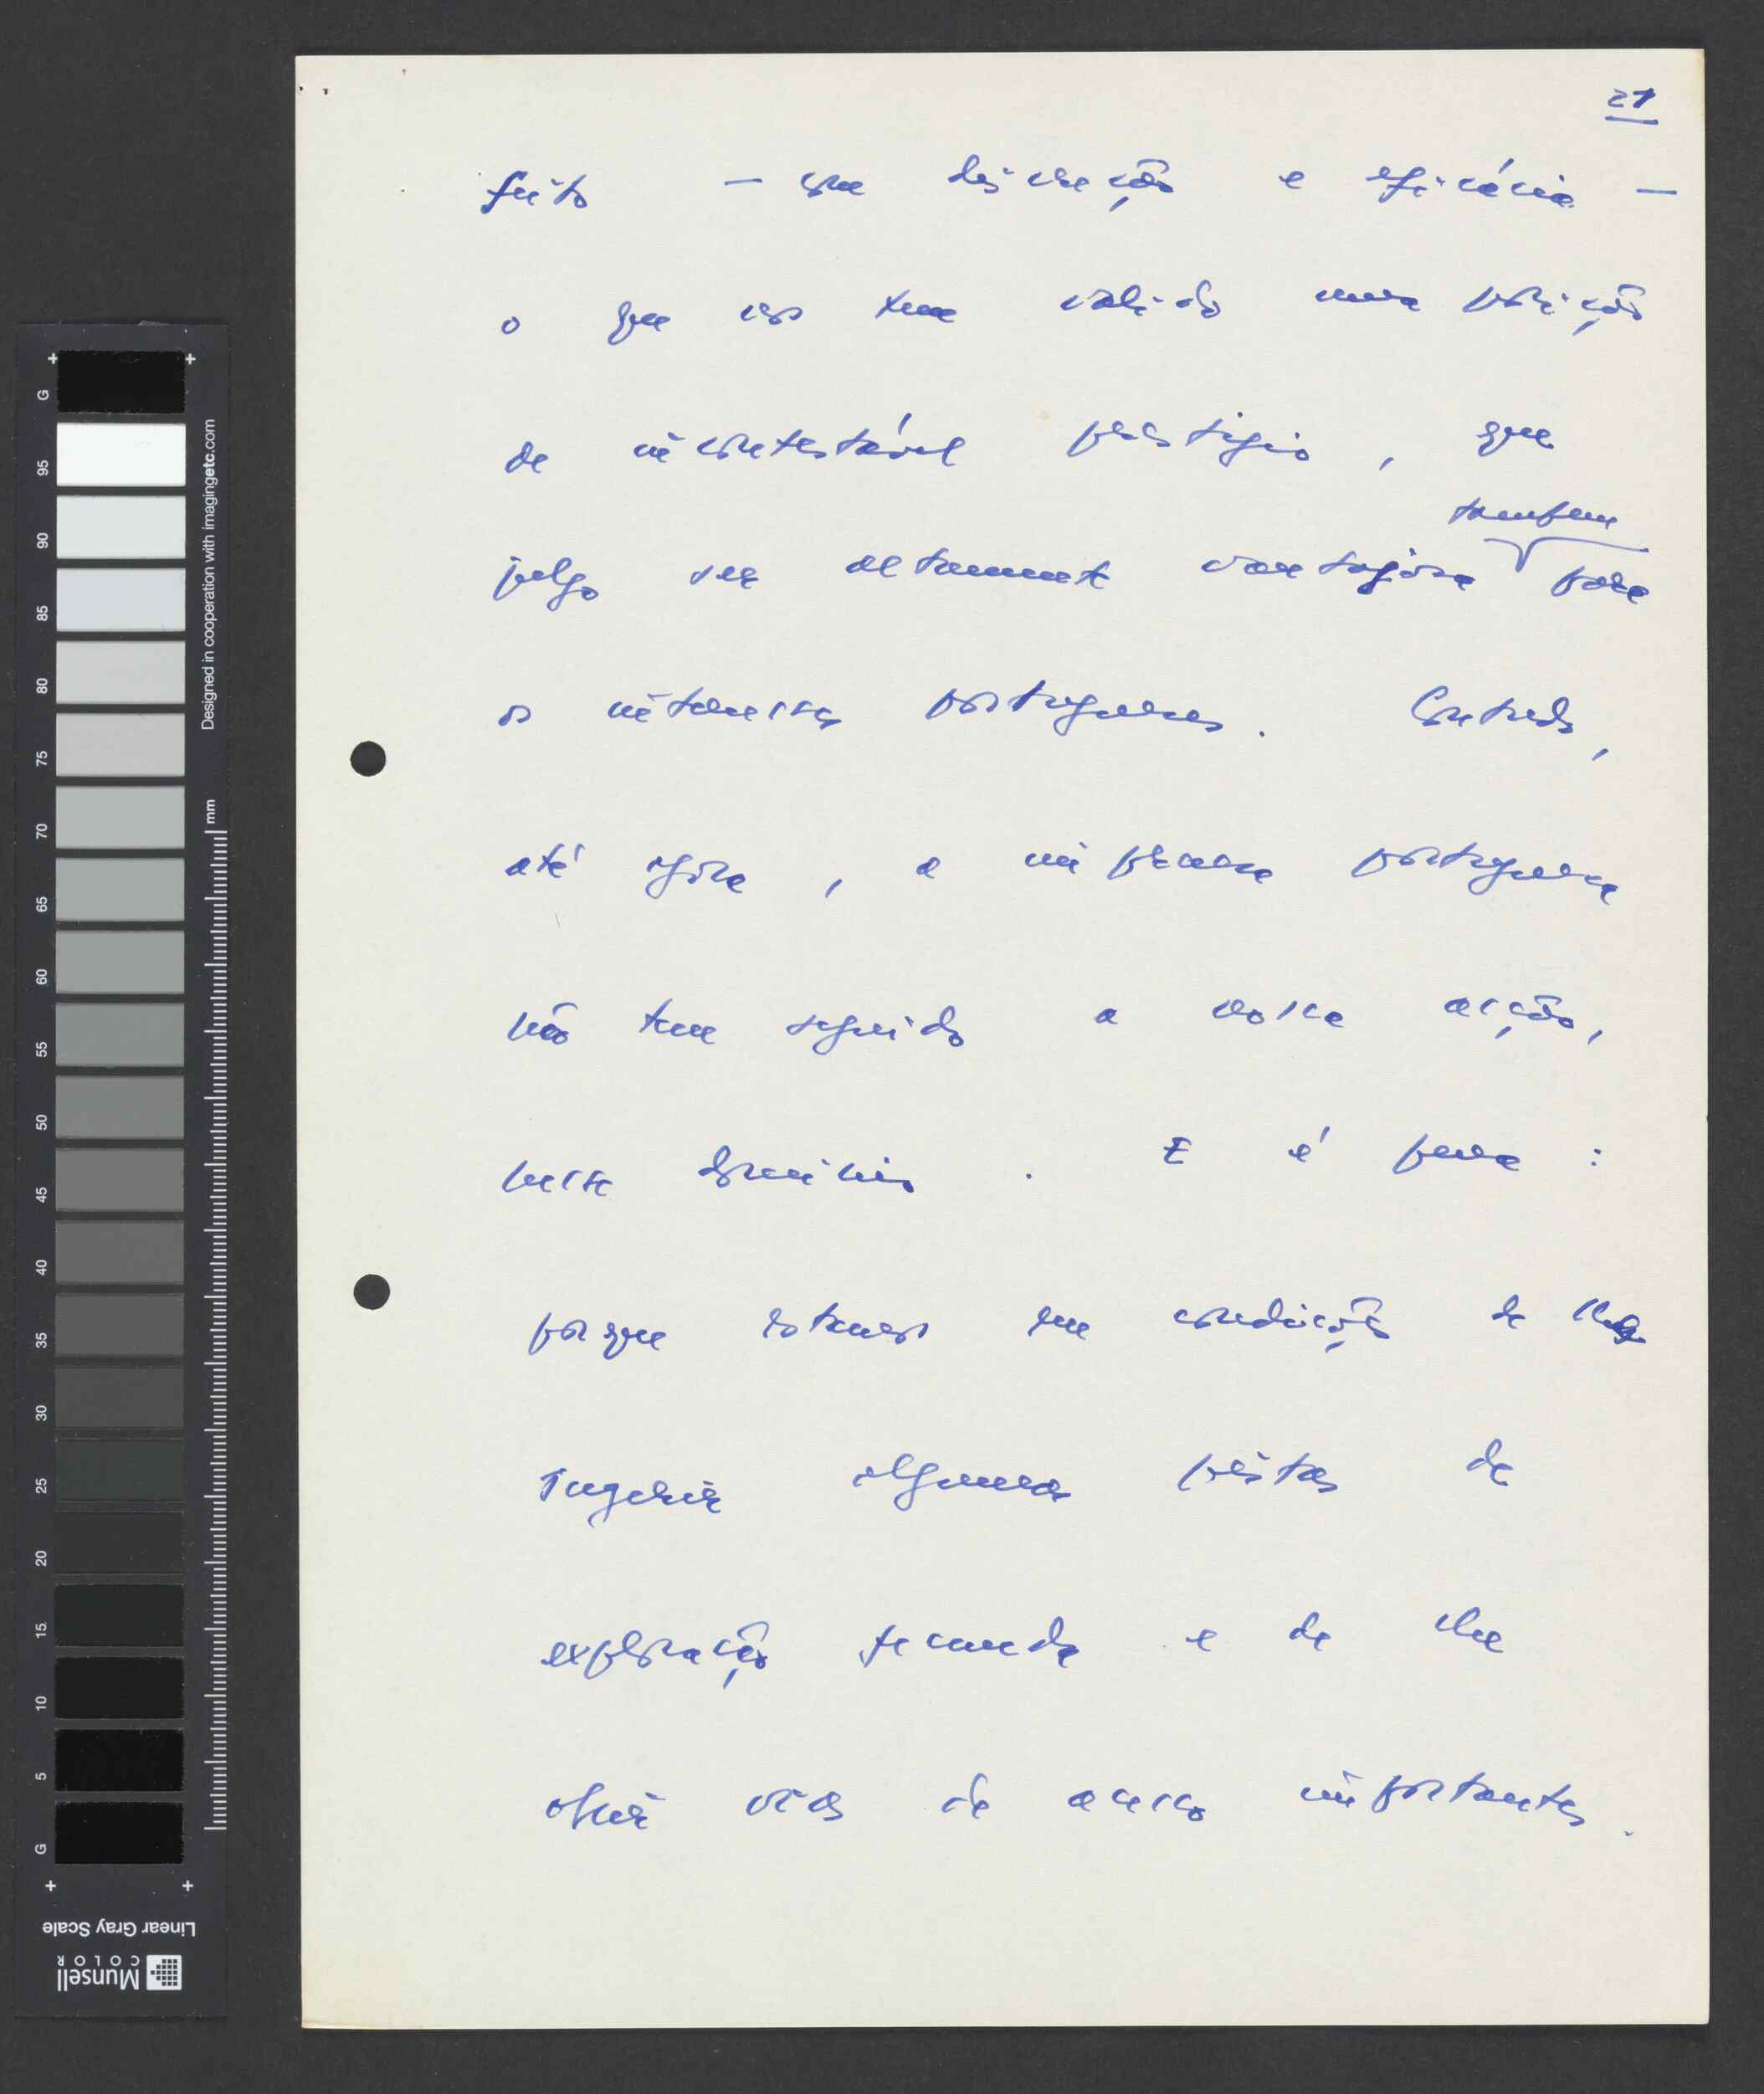 21
feito — com discreção e eficácia —
o que nos tem valido uma posição
de incontestável prestígio, que
também
julgo ser altamente vantajosa para
os interesses portugueses. Contudo,
até agora, a imprensa portuguesa
não tem seguido a nossa acção,
nesse domínio. E é pena:
porque estamos em condições de lhe
sugerir algumas pistas de
exploração fecunda e de lhe
abrir vias de acesso importantes.
G 95 90 85 80 75 70 65 60 55 50 45 40 35 30 25 20 15 10 5 G
Designed in cooperation with imagingetc.com
mm
Linear Gray Scale
Munsell
COLOR